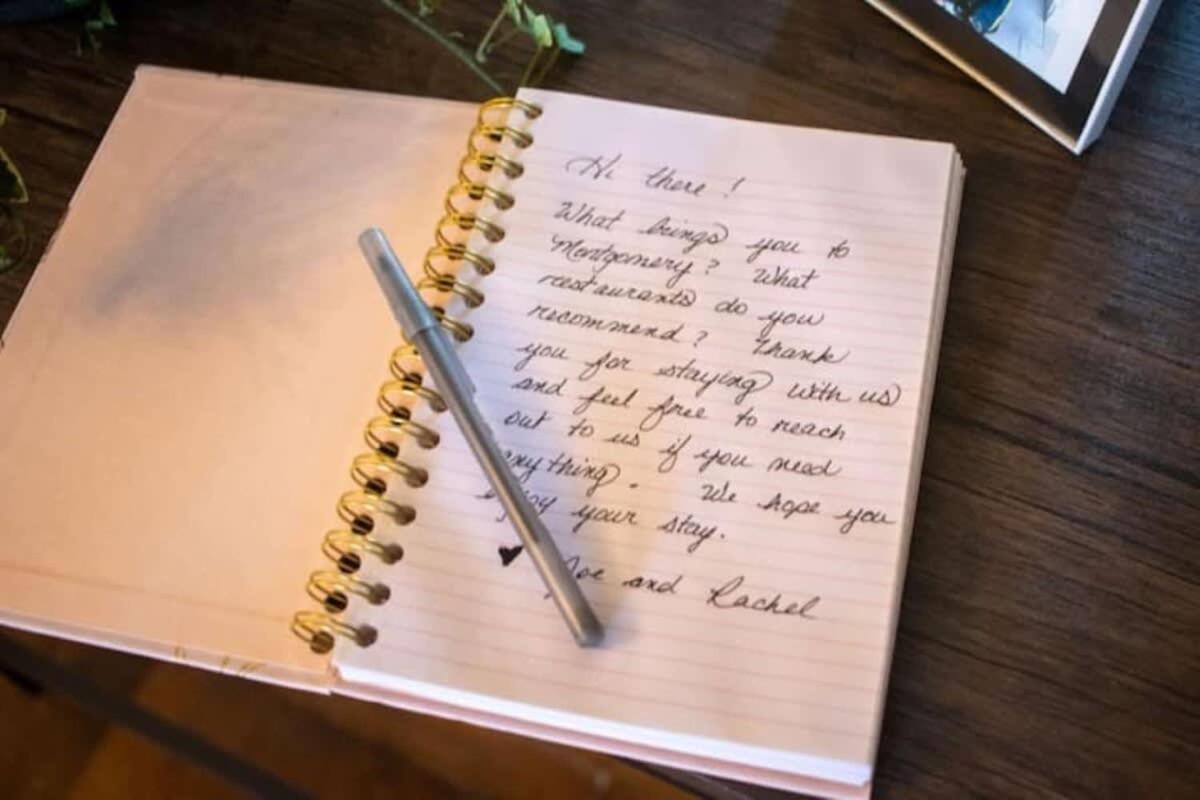 Hi there!
What brings you to
Montgomery? What
restaurants do you
recommend? Thank
you for staying with us
and feel free to reach
out to us if you need
anything. We hope you
enjoy your stay.
♥ Joe and Rachel